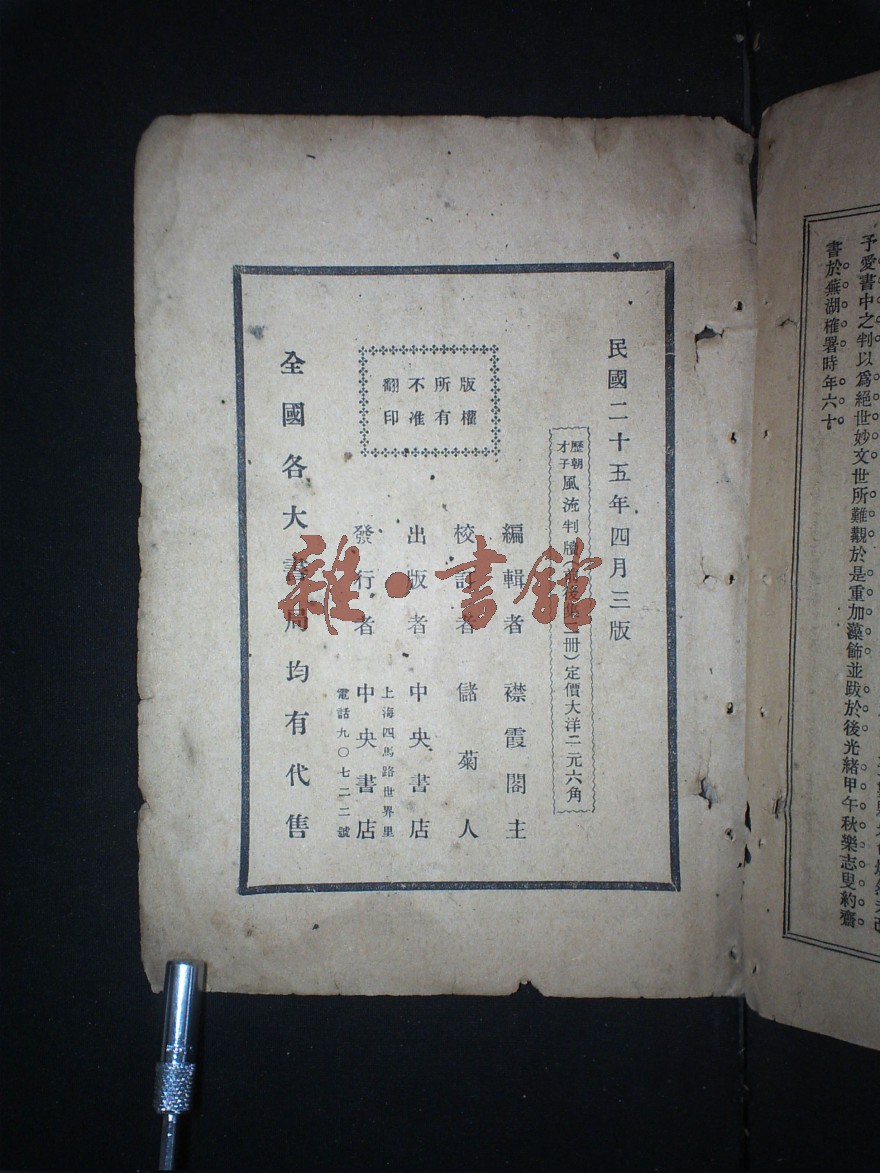 予愛書中之判以爲絕世妙文世所難觀於是重加藻飾並跋於後光緒甲午秋樂志叟約齋
書於蕪湖榷署時年六十
民國二十五年四月三版
歷朝才子風流判牘(前後集二冊)定價大洋二元六角
編輯者 襟霞閣主
校訂者 儲菊人
出版者 中央書店
上海四馬路世界里
發行者 中央書店
電話九〇七二二號
版權
所有
不准
翻印
全國各大書局均有代售
雜·書館